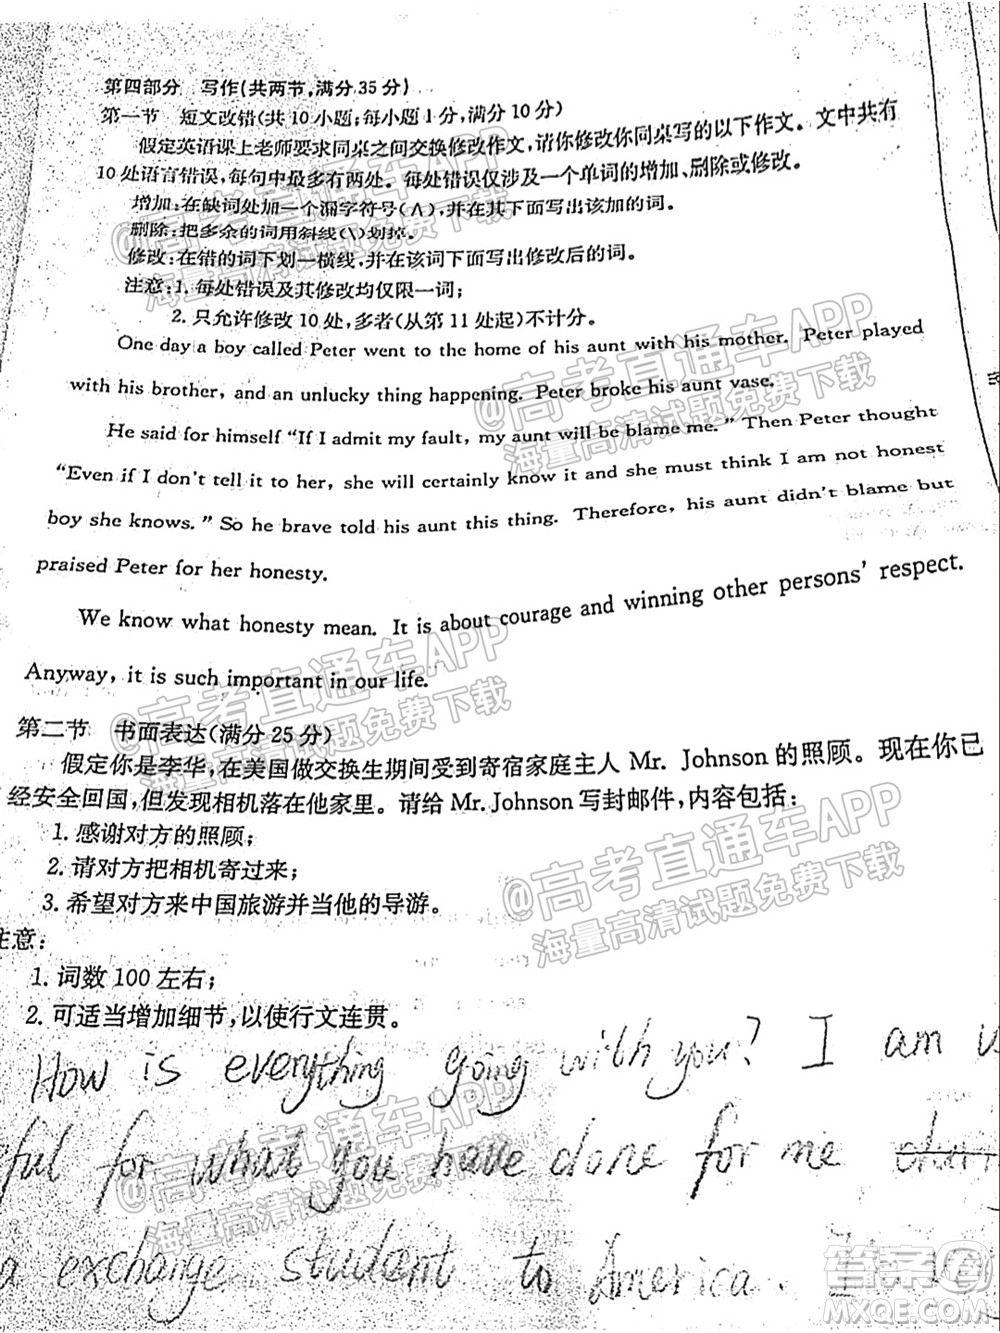 第四部分 写作(共两节,满分35分)
第一节 短文改错(共10小题;每小题1分,满分10分)
假定英语课上老师要求同桌之间交换修改作文,请你修改你同桌写的以下作文。文中共有
10处语言错误,每句中最多有两处。每处错误仅涉及一个单词的增加、删除或修改。
增加:在缺词处加一个漏字符号(∧),并在其下面写出该加的词。
删除:把多余的词用斜线(\)划掉。
修改:在错的词下划一横线,并在该词下面写出修改后的词。
注意:1. 每处错误及其修改均仅限一词;
2. 只允许修改10处,多者(从第11处起)不计分。
One day a boy called Peter went to the home of his aunt with his mother. Peter played
with his brother, and an unlucky thing happening. Peter broke his aunt vase.
He said for himself “If I admit my fault, my aunt will be blame me.” Then Peter thought
“Even if I don't tell it to her, she will certainly know it and she must think I am not honest
boy she knows.” So he brave told his aunt this thing. Therefore, his aunt didn't blame but
praised Peter for her honesty.
We know what honesty mean. It is about courage and winning other persons' respect.
Anyway, it is such important in our life.
第二节 书面表达(满分25分)
假定你是李华,在美国做交换生期间受到寄宿家庭主人 Mr. Johnson的照顾。现在你已
经安全回国,但发现相机落在他家里。请给 Mr. Johnson 写封邮件,内容包括:
1. 感谢对方的照顾;
2. 请对方把相机寄过来;
3. 希望对方来中国旅游并当他的导游。
注意:
1. 词数100左右;
2. 可适当增加细节,以使行文连贯。
How is everything going with you? I am
for what you have done for me
a exchange student to America.
@高考直通车APP
海量高清试题免费下载
@高考直通车APP
海量高清试题免费下载
@高考直通车APP
海量高清试题免费下载
@高考直通车APP
海量高清试题免费下载
@高考直通车APP
海量高清试题免费下载
答案圈
MXQE.COM